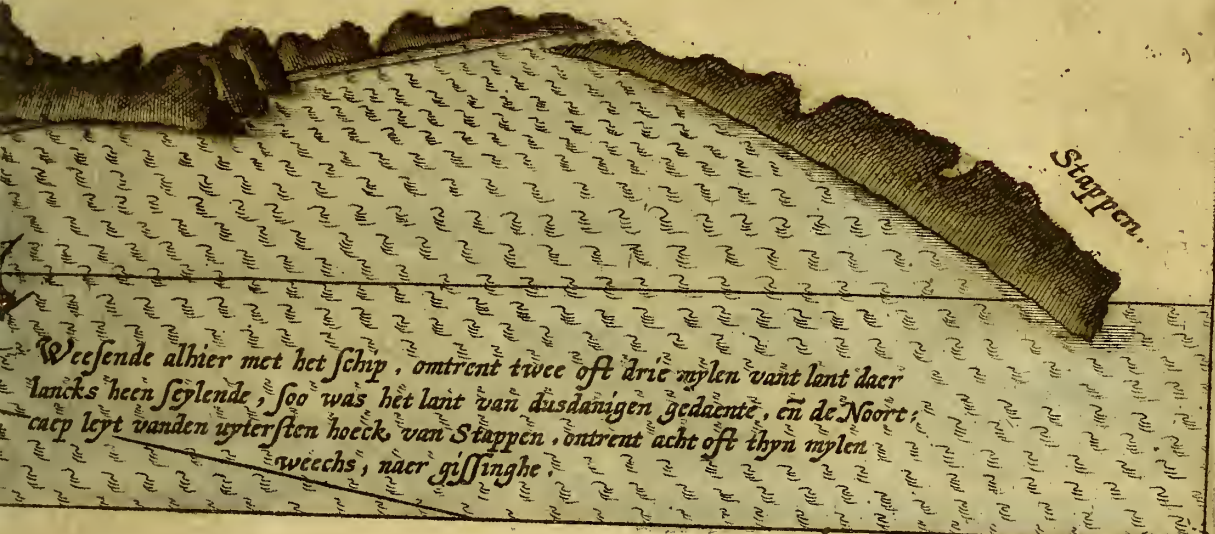 Stappen.
Weeſende alhier met het ſchip, omtrent twee oft drie mylen vant lant daer
lancks heen ſeylende, ſoo was het lant van dusdanigen gedaente, en̄ de Noort:
caep leyt vanden uyterſten hoeck van Stappen, ontrent acht oft thyn mylen
weechs, naer giſſinghe.